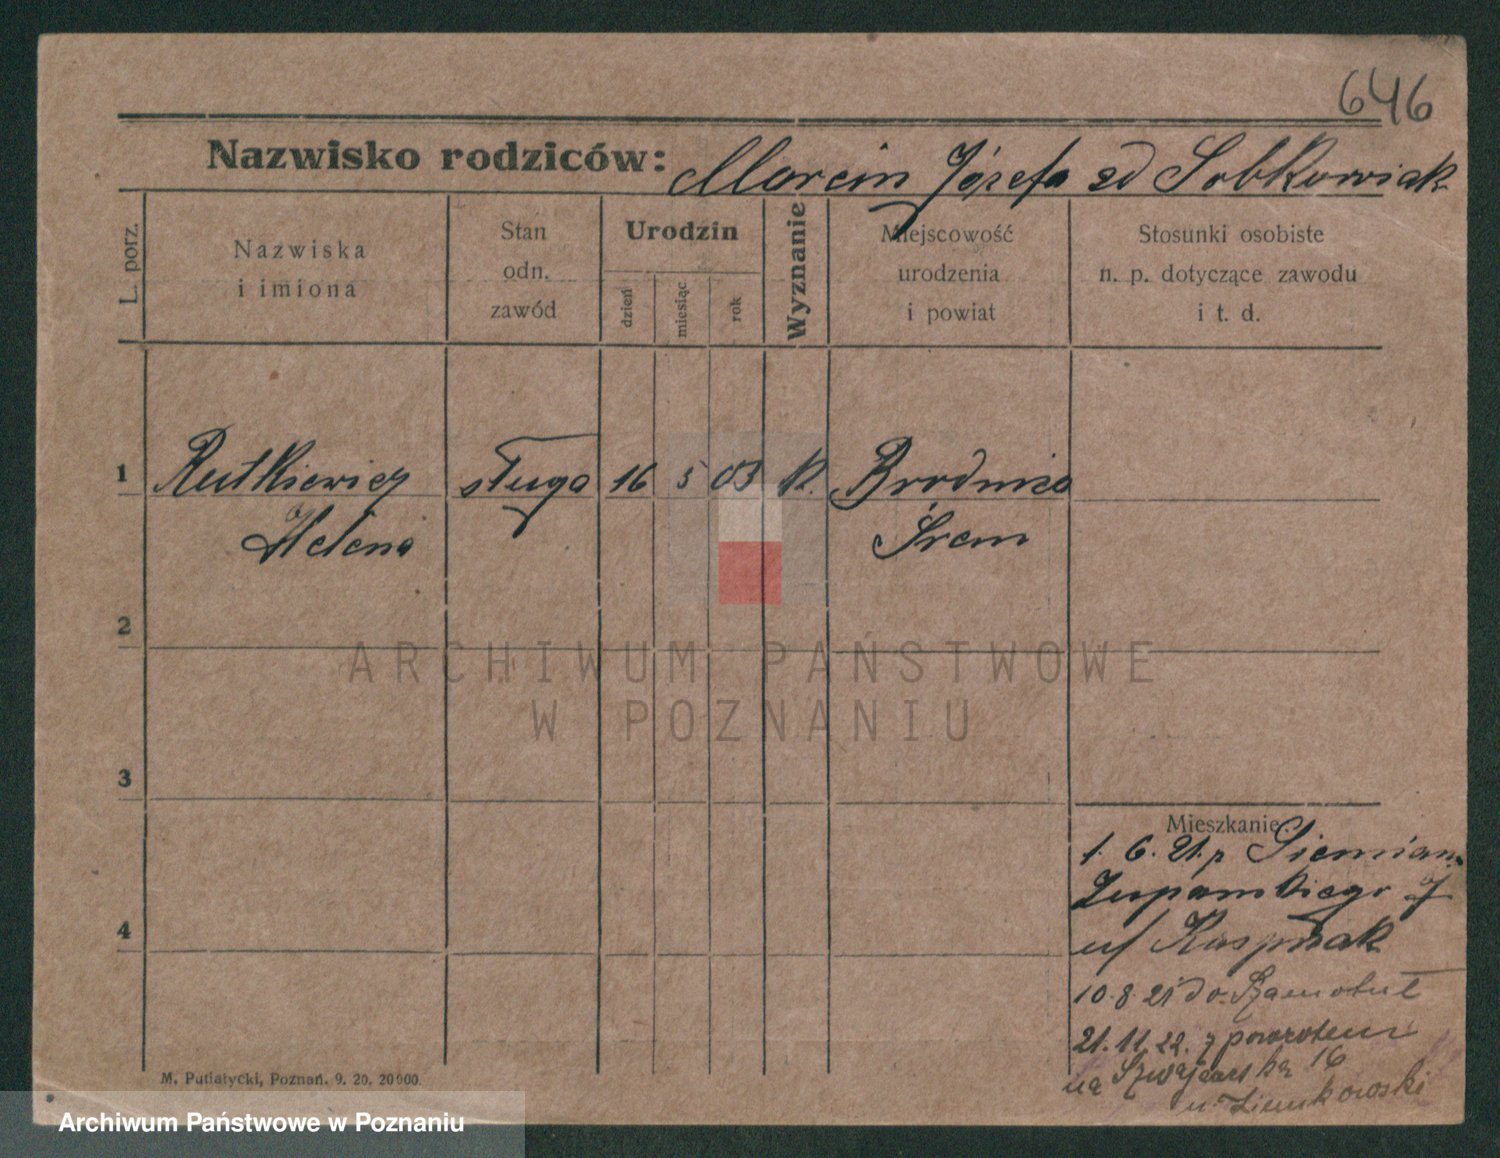 646
Nazwisko rodziców: Marcin Józefa zd Sobkowiak
L. porz.
Nazwiska
i imiona
Stan
odn.
zawód
Urodzin
dzień
miesiąc
rok
Wyznanie
Miejscowość
urodzenia
i powiat
Stosunki osobiste
n. p. dotyczące zawodu
i t. d.
1 Rutkiewicz sługa 16 5 03 k. Brodnica
Helena Śrem
2
ARCHIWUM PAŃSTWOWE
W POZNANIU
3
Mieszkanie:
1. 6. 21. z Siemian.
Żupańskiego 7
4
u/ Kaspzak
10. 8. 21 do Szamotuł
21. 11. 22. z powrotem
na Szwajcarska 16
u. Ziemkowski
M. Putiatycki, Poznań. 9. 20. 20000.
Archiwum Państwowe w Poznaniu